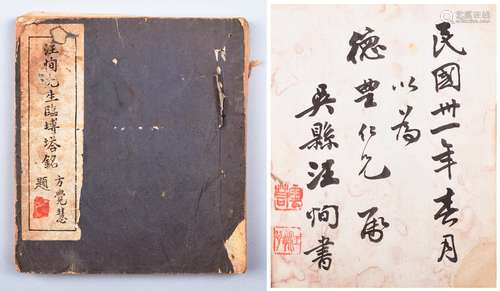 汪恂先生臨塼塔銘
方覺慧題
民國卅一年春月
以為
德豐仁兄屬
吳縣汪恂書